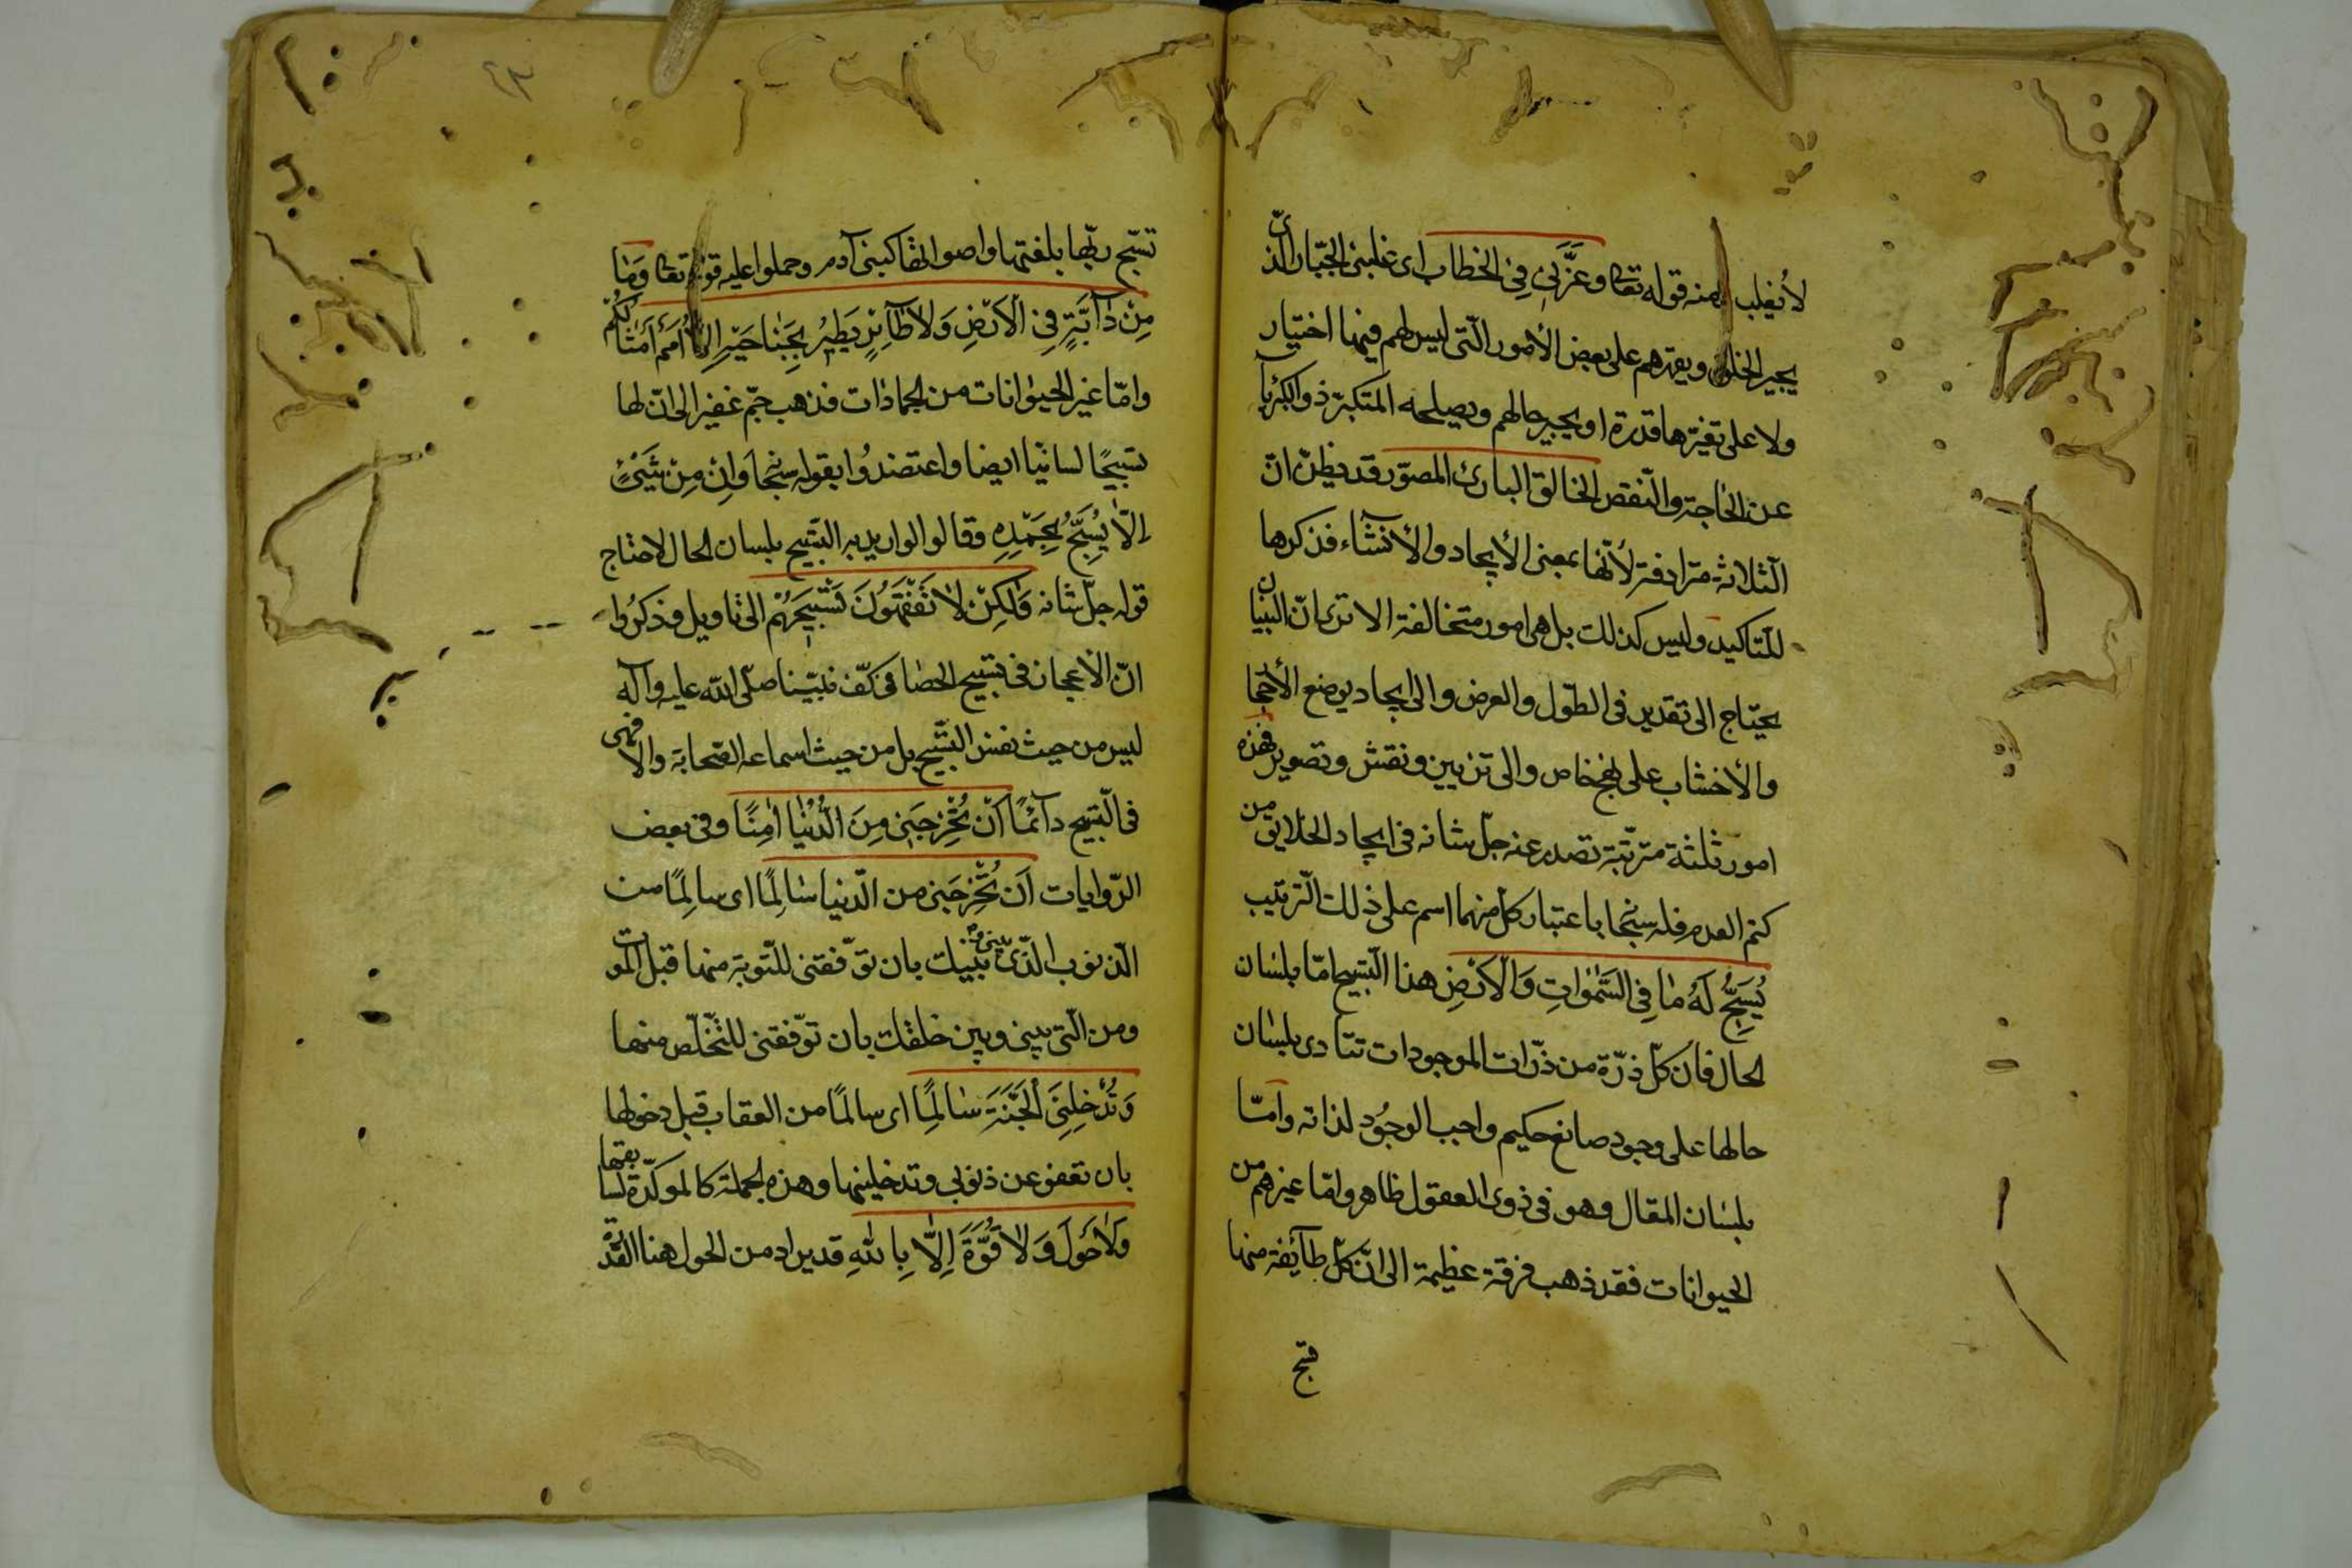 لا يغلب منه قوله تعا وعَزَّنِي فِي الخطاب اى غلبنى الجبّار الّذى
يجبر الخلق ويقهرهم على بعض الأمور الّتى ليس لهم فيها اختيار
ولا على تغيّرها قدرة او يجبر حالهم ويصلحه المتكبّر ذو الكبريآ
عن الحاجة والنّقص الخالق البارئ المصوّر قد يظنّ انّ
الثّلاثة مترادفة لأنّها بمعنى الأيجاد والأنشآء فذكرها
للتّاكيد وليس كذلك بل هى امور متخالفة الا ترى انّ البنيان
يحتاج الى تقدير فى الطّول والعرض والى ايجاد بوضع الأحجا
والأخشاب على نهج خاص والى تزيين ونقش وتصوير فهذه
امور ثلثة مترتّبة تصدر عنه جلّ شانه فى ايجاد الخلايق من
كتم العدم فله سبحا باعتبار كل منهما اسم على ذلك التّرتيب
يُسَبِّحُ لَهُ مٰا فِى السَّمٰوٰاتِ وَالْاَرْضِ هذا التّسبيح امّا بلسٰان
الحال فان كلّ ذرّة من ذرّات الموجودات تنادى بلسٰان
حالها على وجود صانع حكيم واجب الوجُود لذاته وامّا
بلسٰان المقال وهو فى ذوى العقول ظاهر وامّا غيرهم من
الحيوانات فقد ذهب فرقة عظيمة الى انّ كلّ طآئفة منها
تسبّح
تسبّح ربّها بلغتها واصواتها كبنى آدم وحملوا عليه قوله تعا وَمٰا
مِنْ دٰآبَّةٍ فِى الْاَرْضِ وَلٰا طٰآئِرٍ يَطِيرُ بِجَنٰاحَيْهِ اِلّٰا اُمَمٌ اَمْثٰالُكُمْ
وامّا غير الحيوٰانات من الجمادات فذهب جمّ غفير الى انّ لها
تسبيحًا لسانيّا ايضا واعتضدُوا بقوله سبحا وَاِنْ مِنْ شَيْئٍ
اِلّٰا يُسَبِّحُ بِحَمْدِهِ وقالوا لو اريد به التّسبيح بلسان الحال لاحتاج
قوله جلّ شانه وَلٰكِنْ لٰا تَفْقَهُونَ تَسْبِيحَهُمْ الى تاويل وذكرُوا
انّ الأعجاز فى تسبيح الحصٰا فى كفّ نبيّنا صلّى اللّه عليه وآله
ليس من حيث نفس التّسبيح بل من حيث اسماعه الصّحابة والّا فهى
فى التّسبيح دآئمًا اَنْ تُخْرِجَنِى مِنَ الدُّنْيٰا اٰمِنًا وفى بعض
الرّوايات اَن تُخْرِجَنى من الدّنيا سٰالِمًا اى سالِمًا من
الذّنوب الّذى بينى وبينك بان توّفقنى للتّوبة منها قبل الموت
ومن الّتى بينى وبين خلقك بان توّفقنى للتّخلّص منها
وَتُدْخِلَنِى الْجَنَّةَ سٰالِمًا اى سالمًا من العقاب قبل دخولها
بان تعفو عن ذنوبى وتدخلينها وهذه الجملة كالموكدّة لسابقتها
وَلٰا حَوْلَ وَلٰا قُوَّةَ اِلّٰا بِاللّٰهِ قد يراد من الحول هنا القدرة